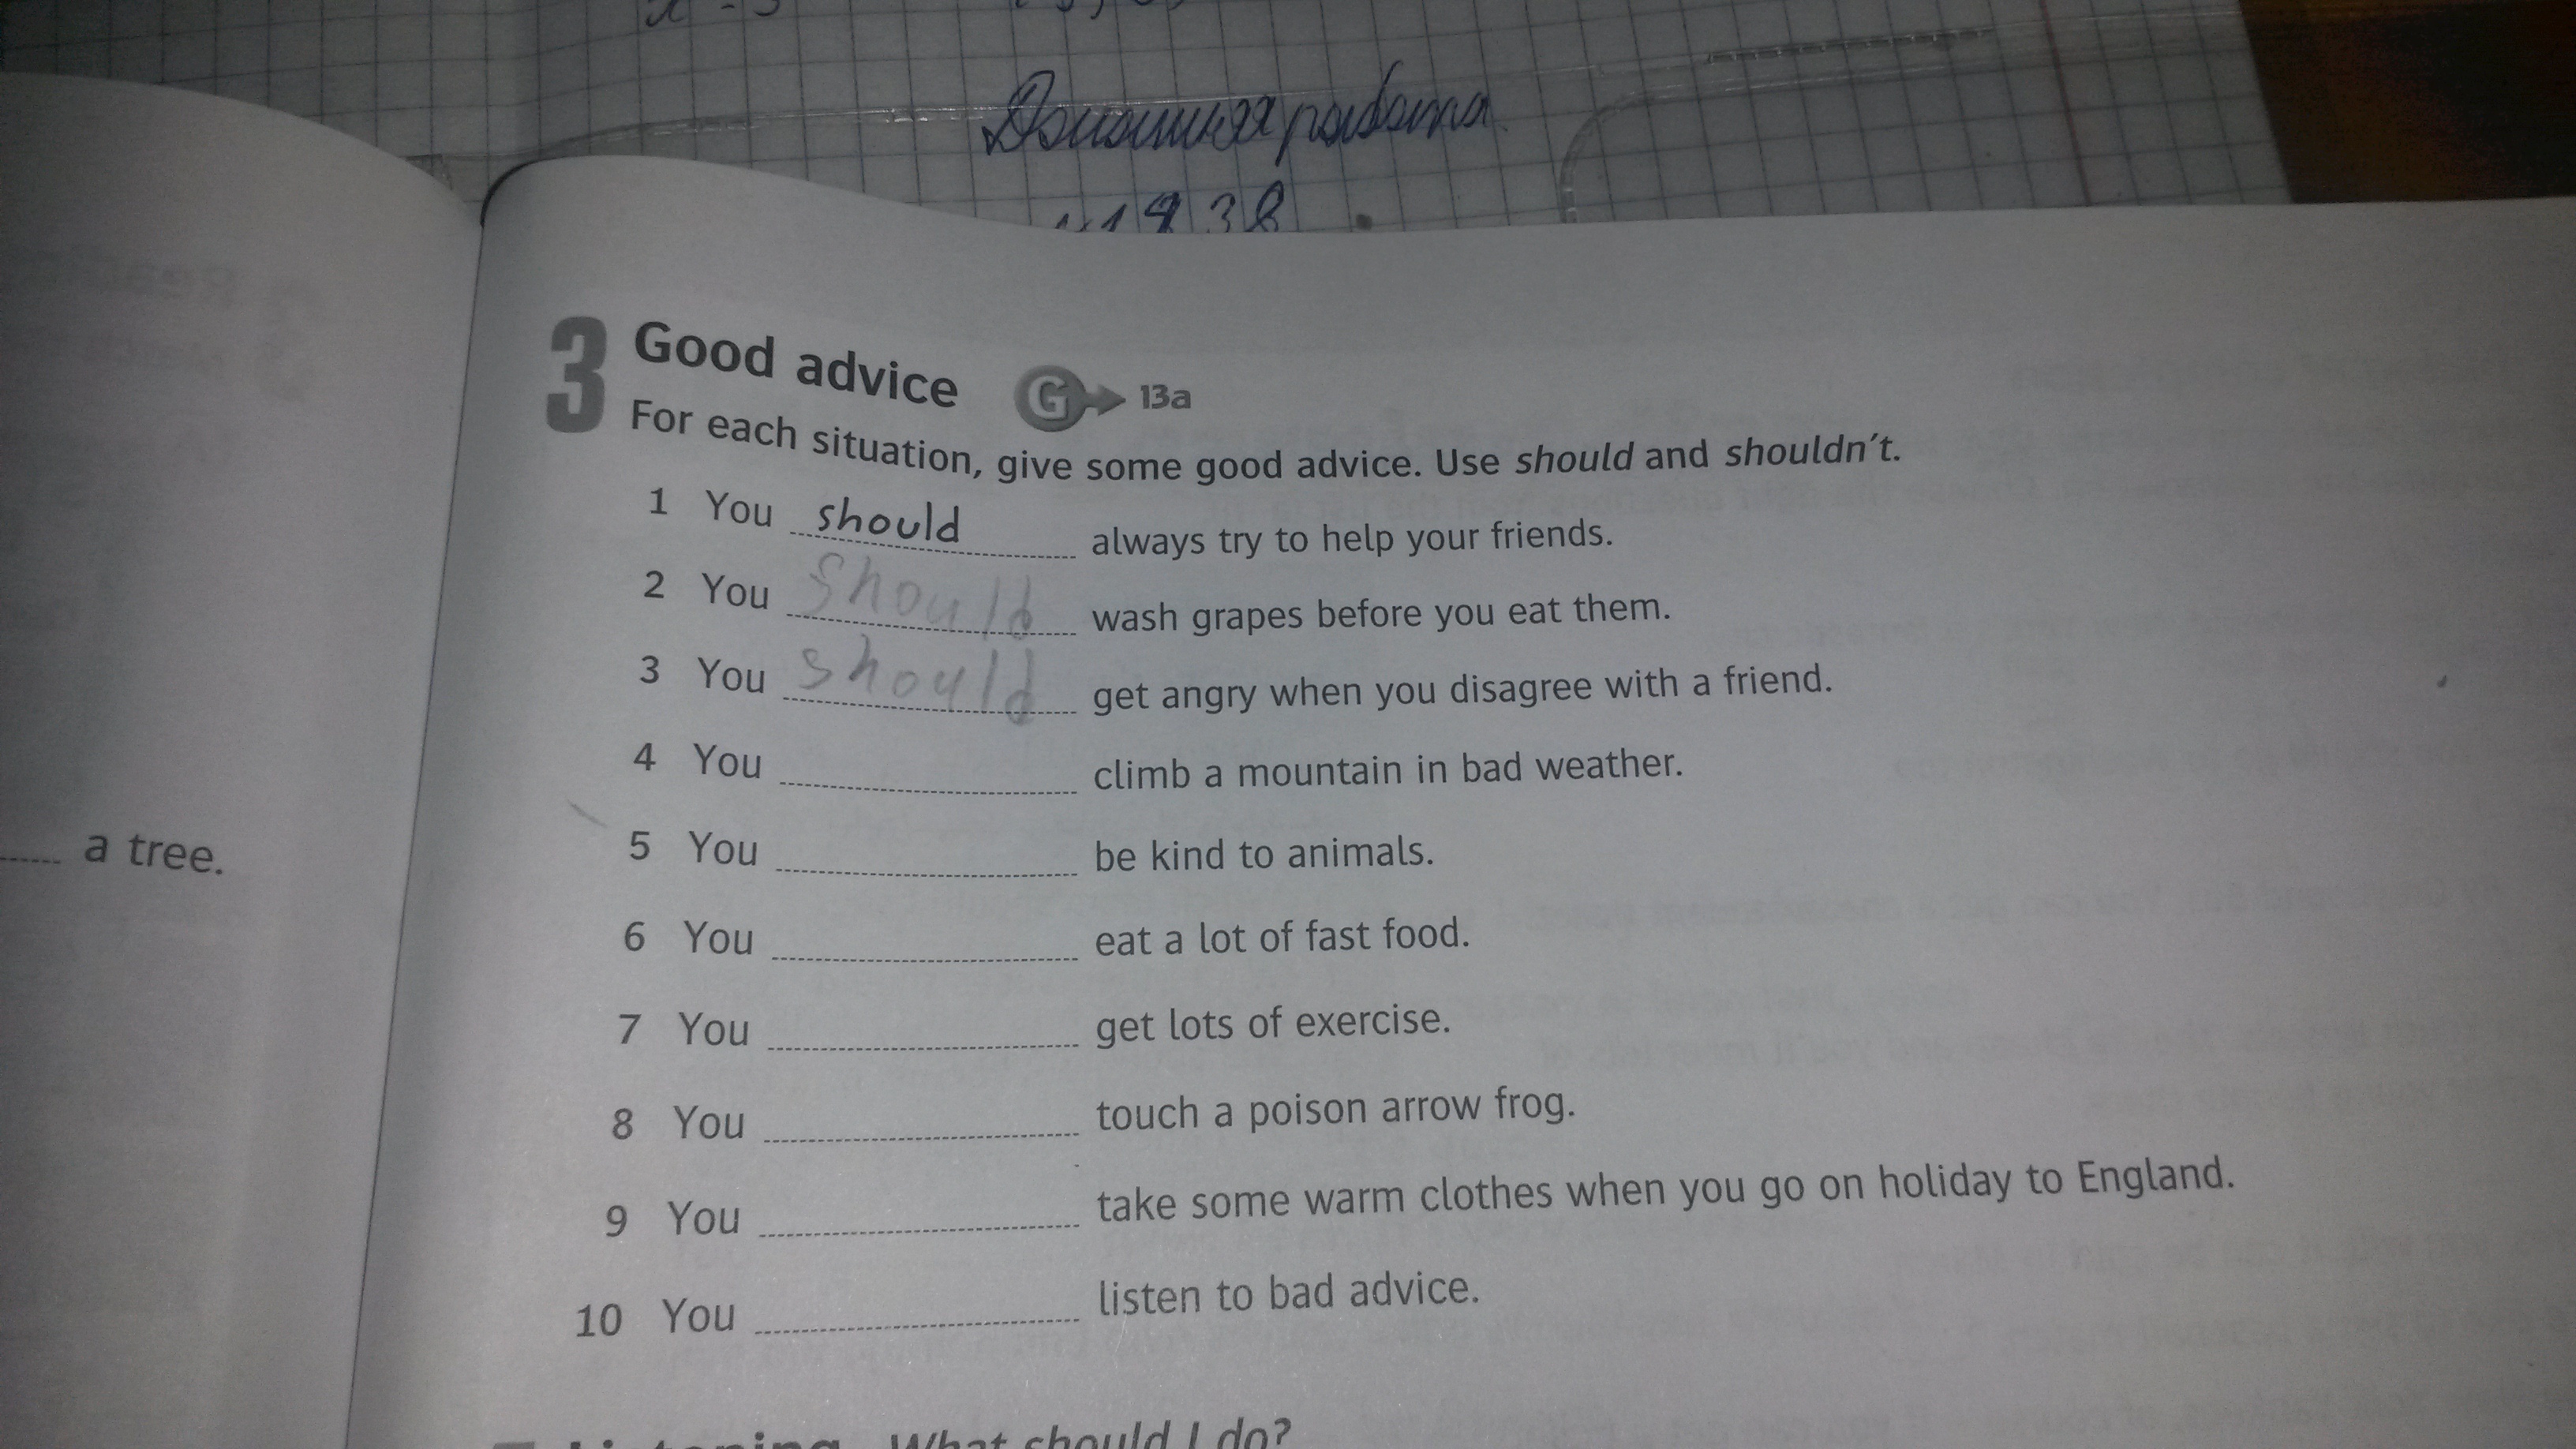 Домашняя работа.
3 Good advice G 13a
For each situation, give some good advice. Use should and shouldn't.
1 You should always try to help your friends.
2 You should wash grapes before you eat them.
3 You should get angry when you disagree with a friend.
4 You climb a mountain in bad weather.
a tree.
5 You be kind to animals.
6 You eat a lot of fast food.
7 You get lots of exercise.
8 You touch a poison arrow frog.
9 You take some warm clothes when you go on holiday to England.
10 You listen to bad advice.
What should I do?